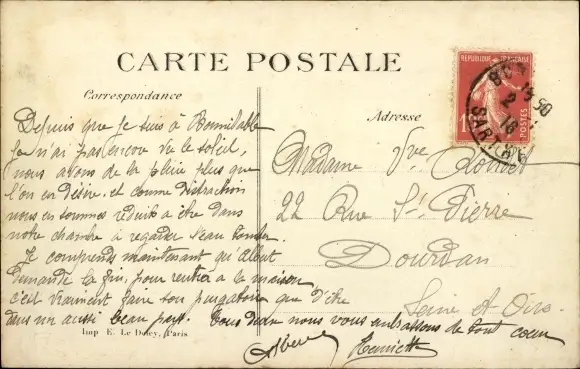 CARTE POSTALE
Correspondance
Adresse
REPUBLIQUE FRANÇAISE
POSTES
SARTHE
Depuis que je suis à Bonnétable
je n'ai pas encore vu le soleil,
nous avons de la pluie plus que
l'on en désire. et comme distraction
nous en sommes réduits à être dans
notre chambre à regarder l'eau tomber.
Je comprends maintenant qu'Albert
demande la fin, pour rentrer à la maison
c'est vraiment faire son purgatoire que d'être
dans un aussi beau pays. Tous deux nous vous embrassons de tout cœur
Henriette
Madame Vve
22 Rue St Pierre
Dourdan
Seine et Oise
Imp E. Le Deley, Paris